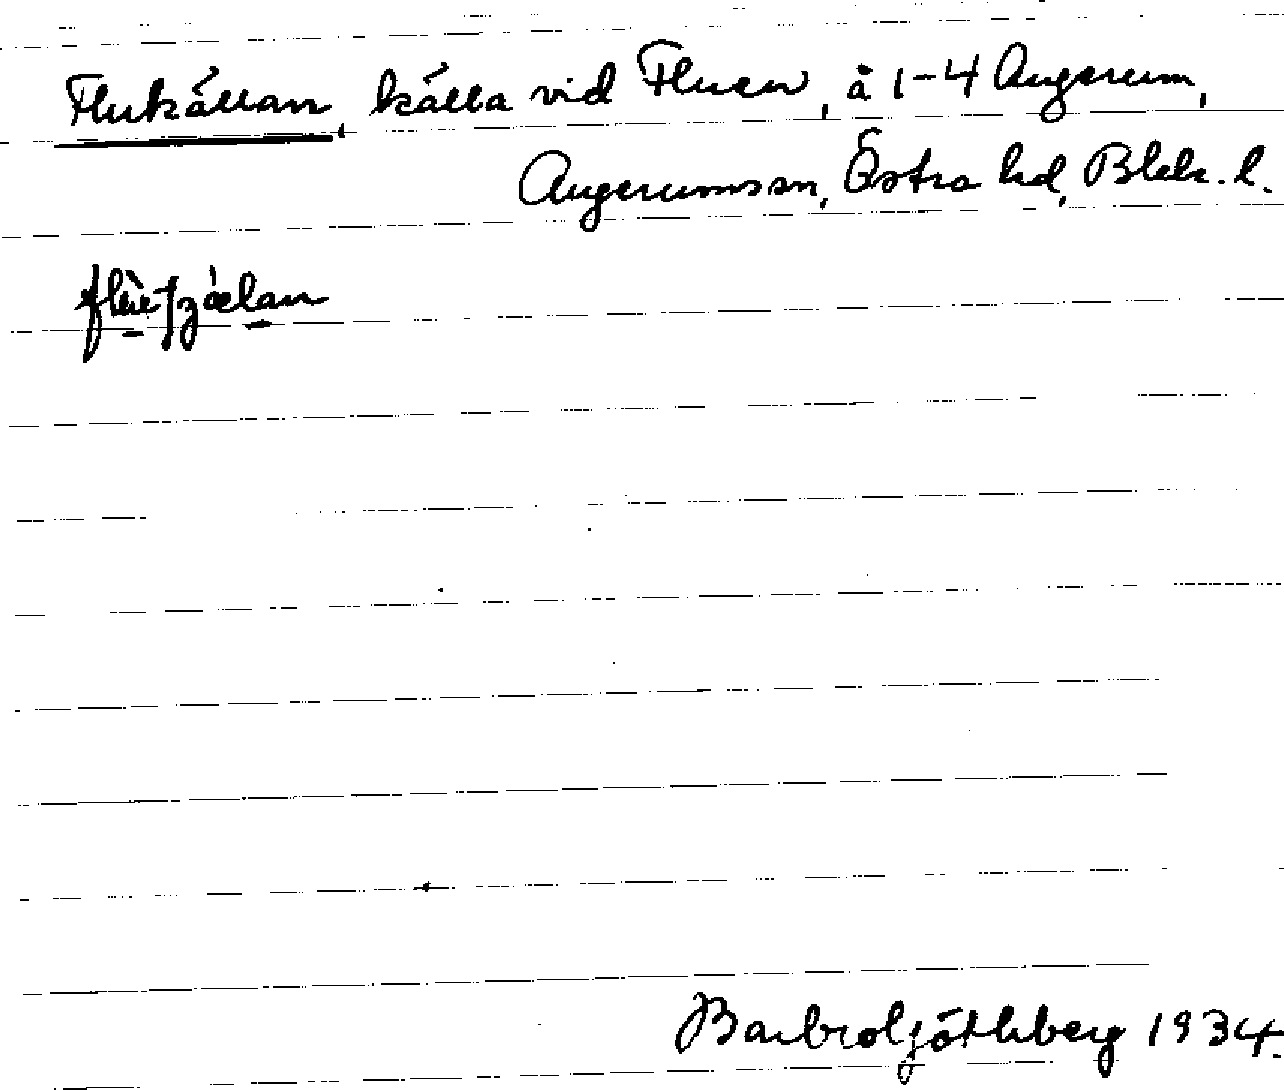 Flukällan, källa vid Fluen, å 1-4 Augerum,
Augerumssn, Östra hd, Blek. l.
Barbro Göthberg 1934.